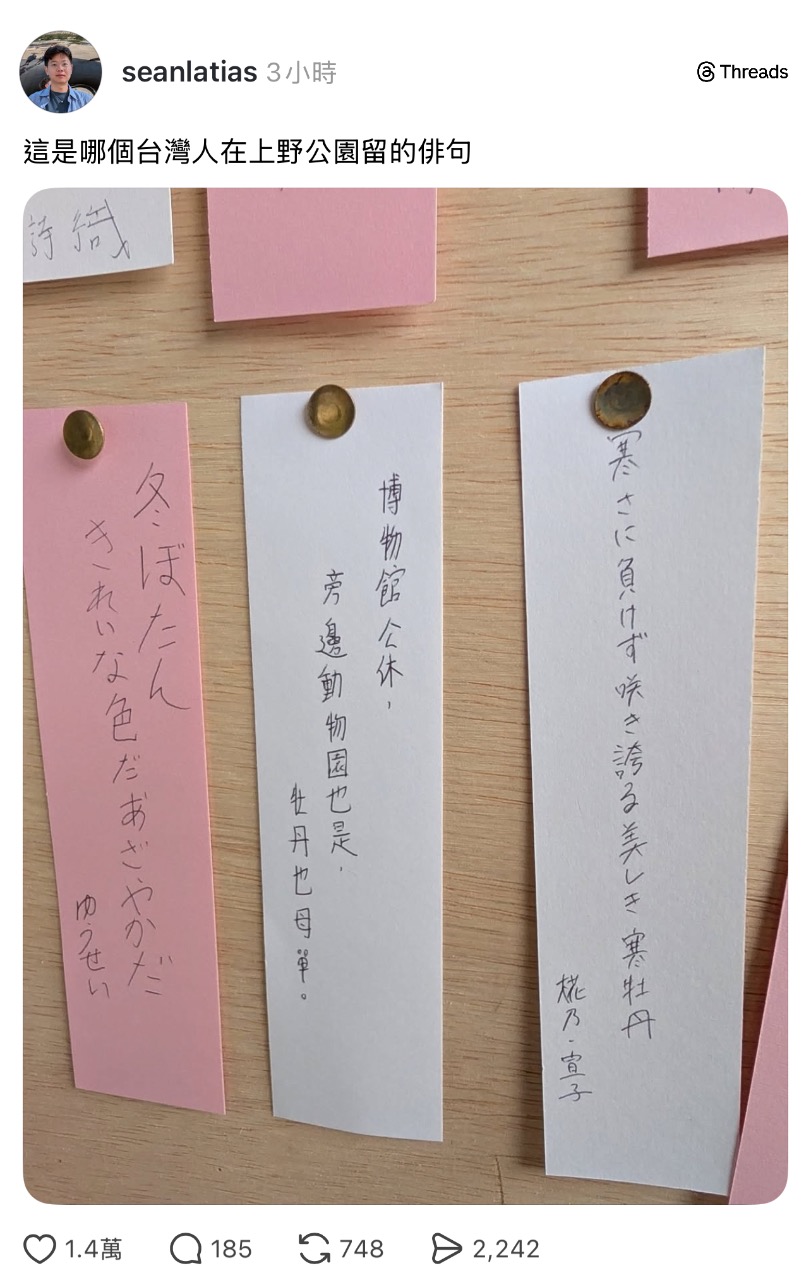 seanlatias 3小時
Threads
這是哪個台灣人在上野公園留的俳句
詩織
冬ぼたん
きれいな色だあざやかだ
ゆうせい
博物館公休,
旁邊動物園也是,
牡丹也母單。
寒さに負けず咲き誇る美しき寒牡丹
椛乃・宣子
1.4萬
185
748
2,242